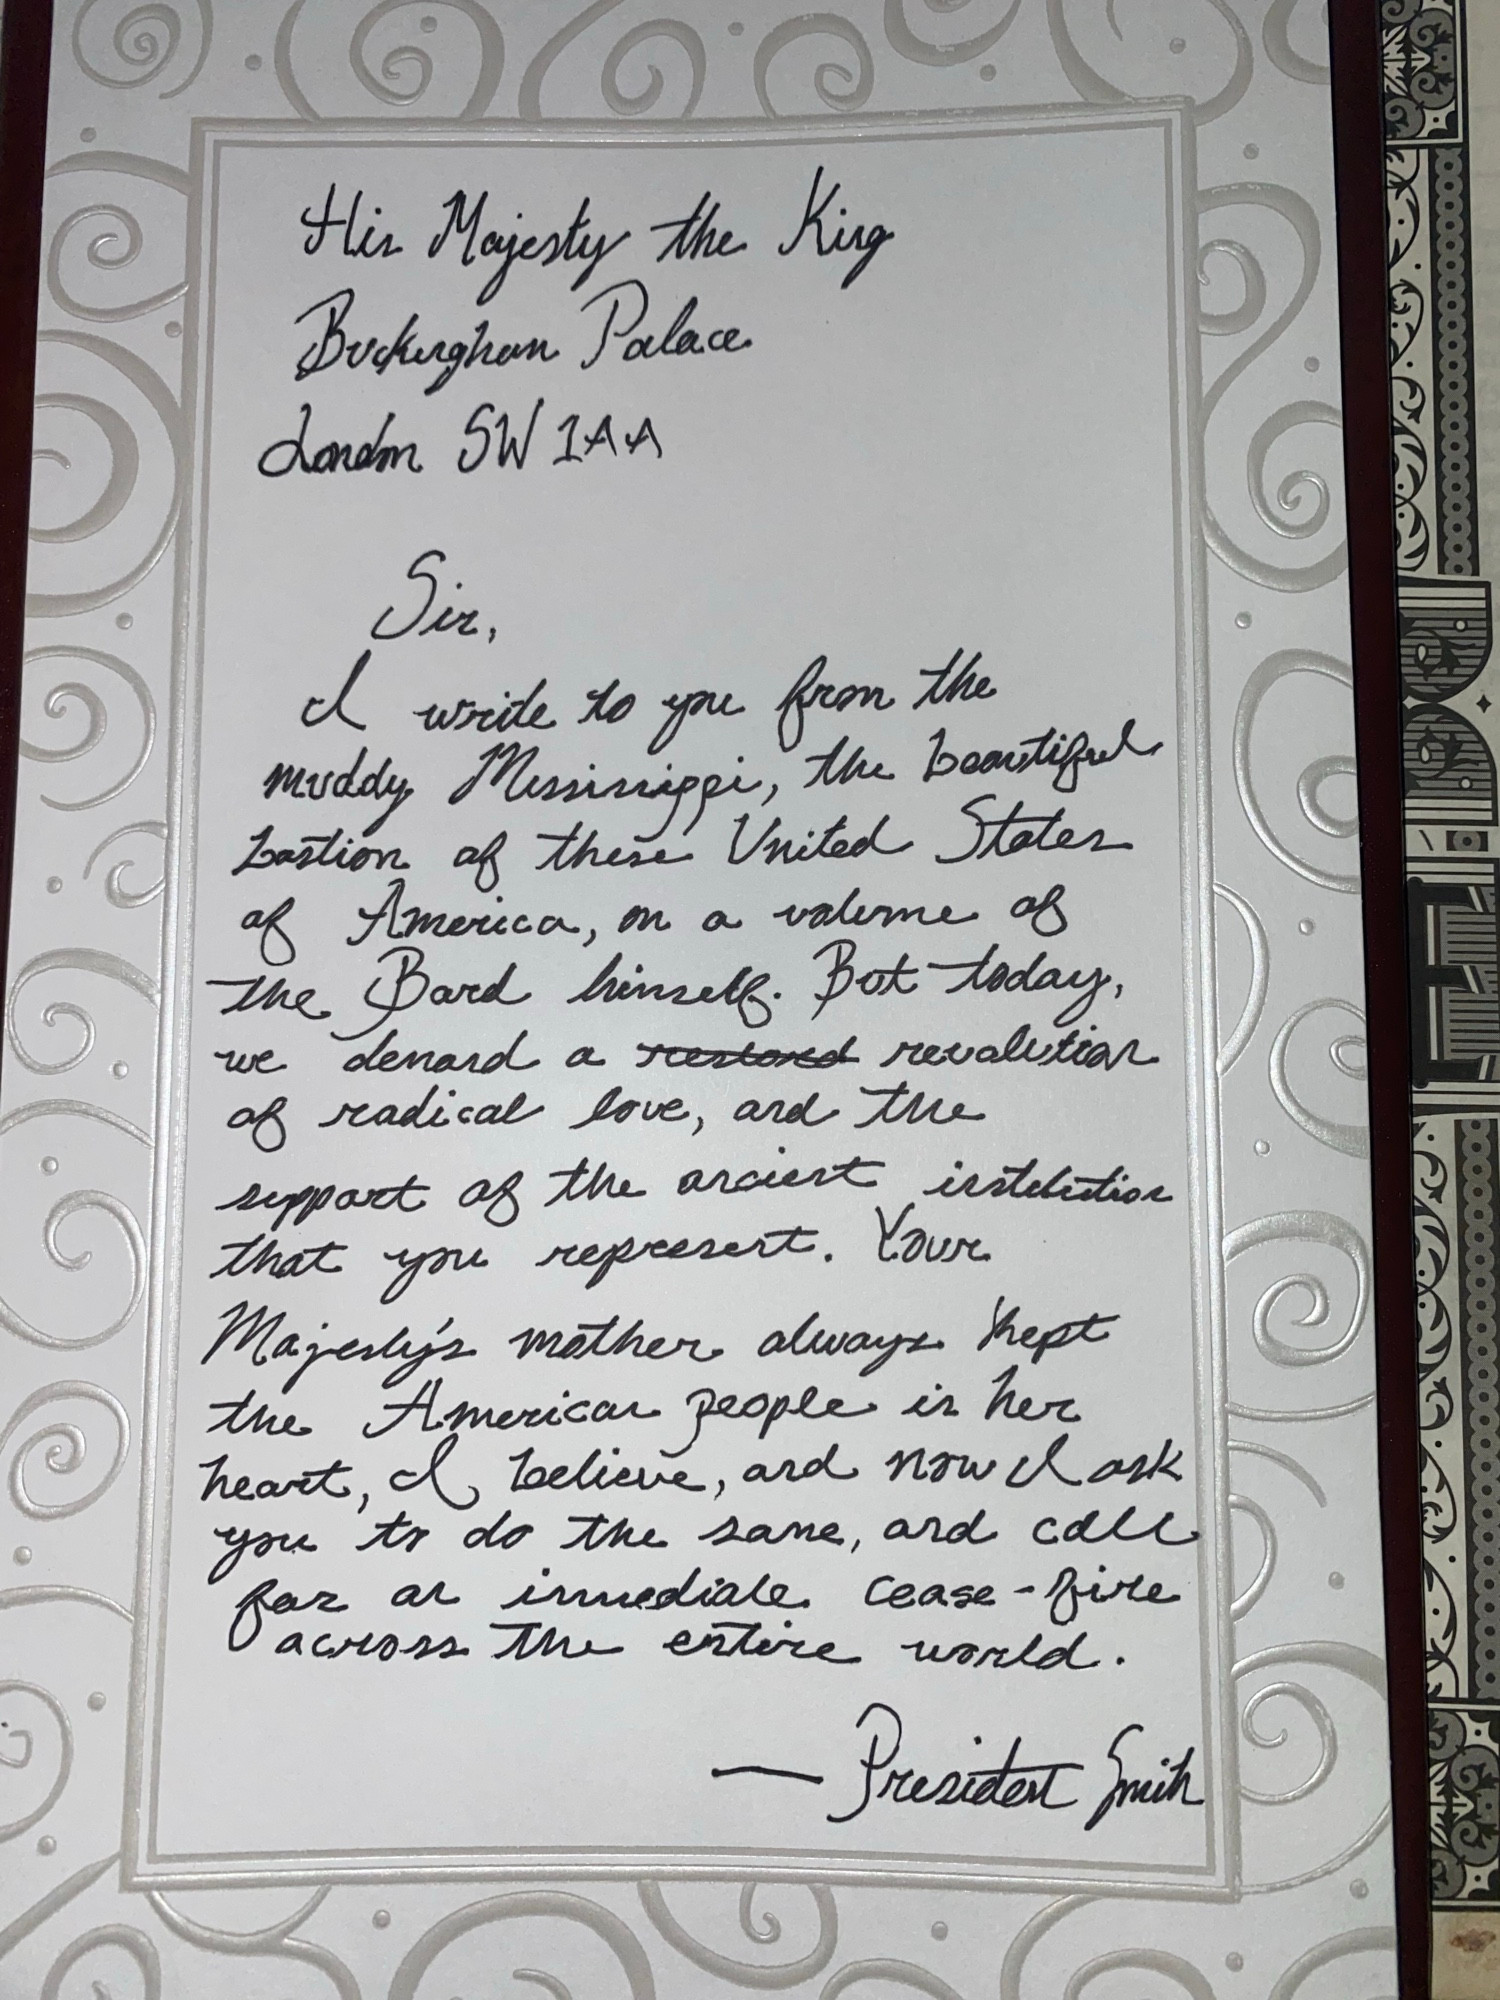 His Majesty the King
Buckingham Palace
London SW1AA
Sir,
I write to you from the
muddy Mississippi, the beautiful
bastion of these United States
of America, on a volume of
the Bard himself. But today,
we demand a restored revolution
of radical love, and the
support of the ancient institution
that you represent. Your
Majesty's mother always kept
the American people in her
heart, I believe, and now I ask
you to do the same, and call
for an immediate cease-fire
across the entire world.
— President Smith